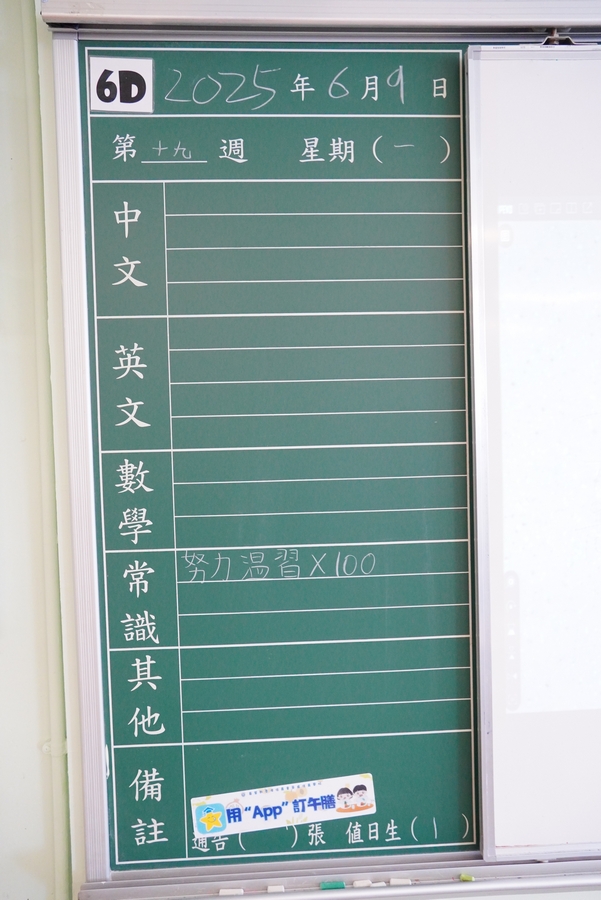 6D 2025年6月9日
第十九週 星期(一)
中文
英文
數學
常識
努力温習×100
其他
備註
用“App”訂午膳
通告( )張 值日生(1)